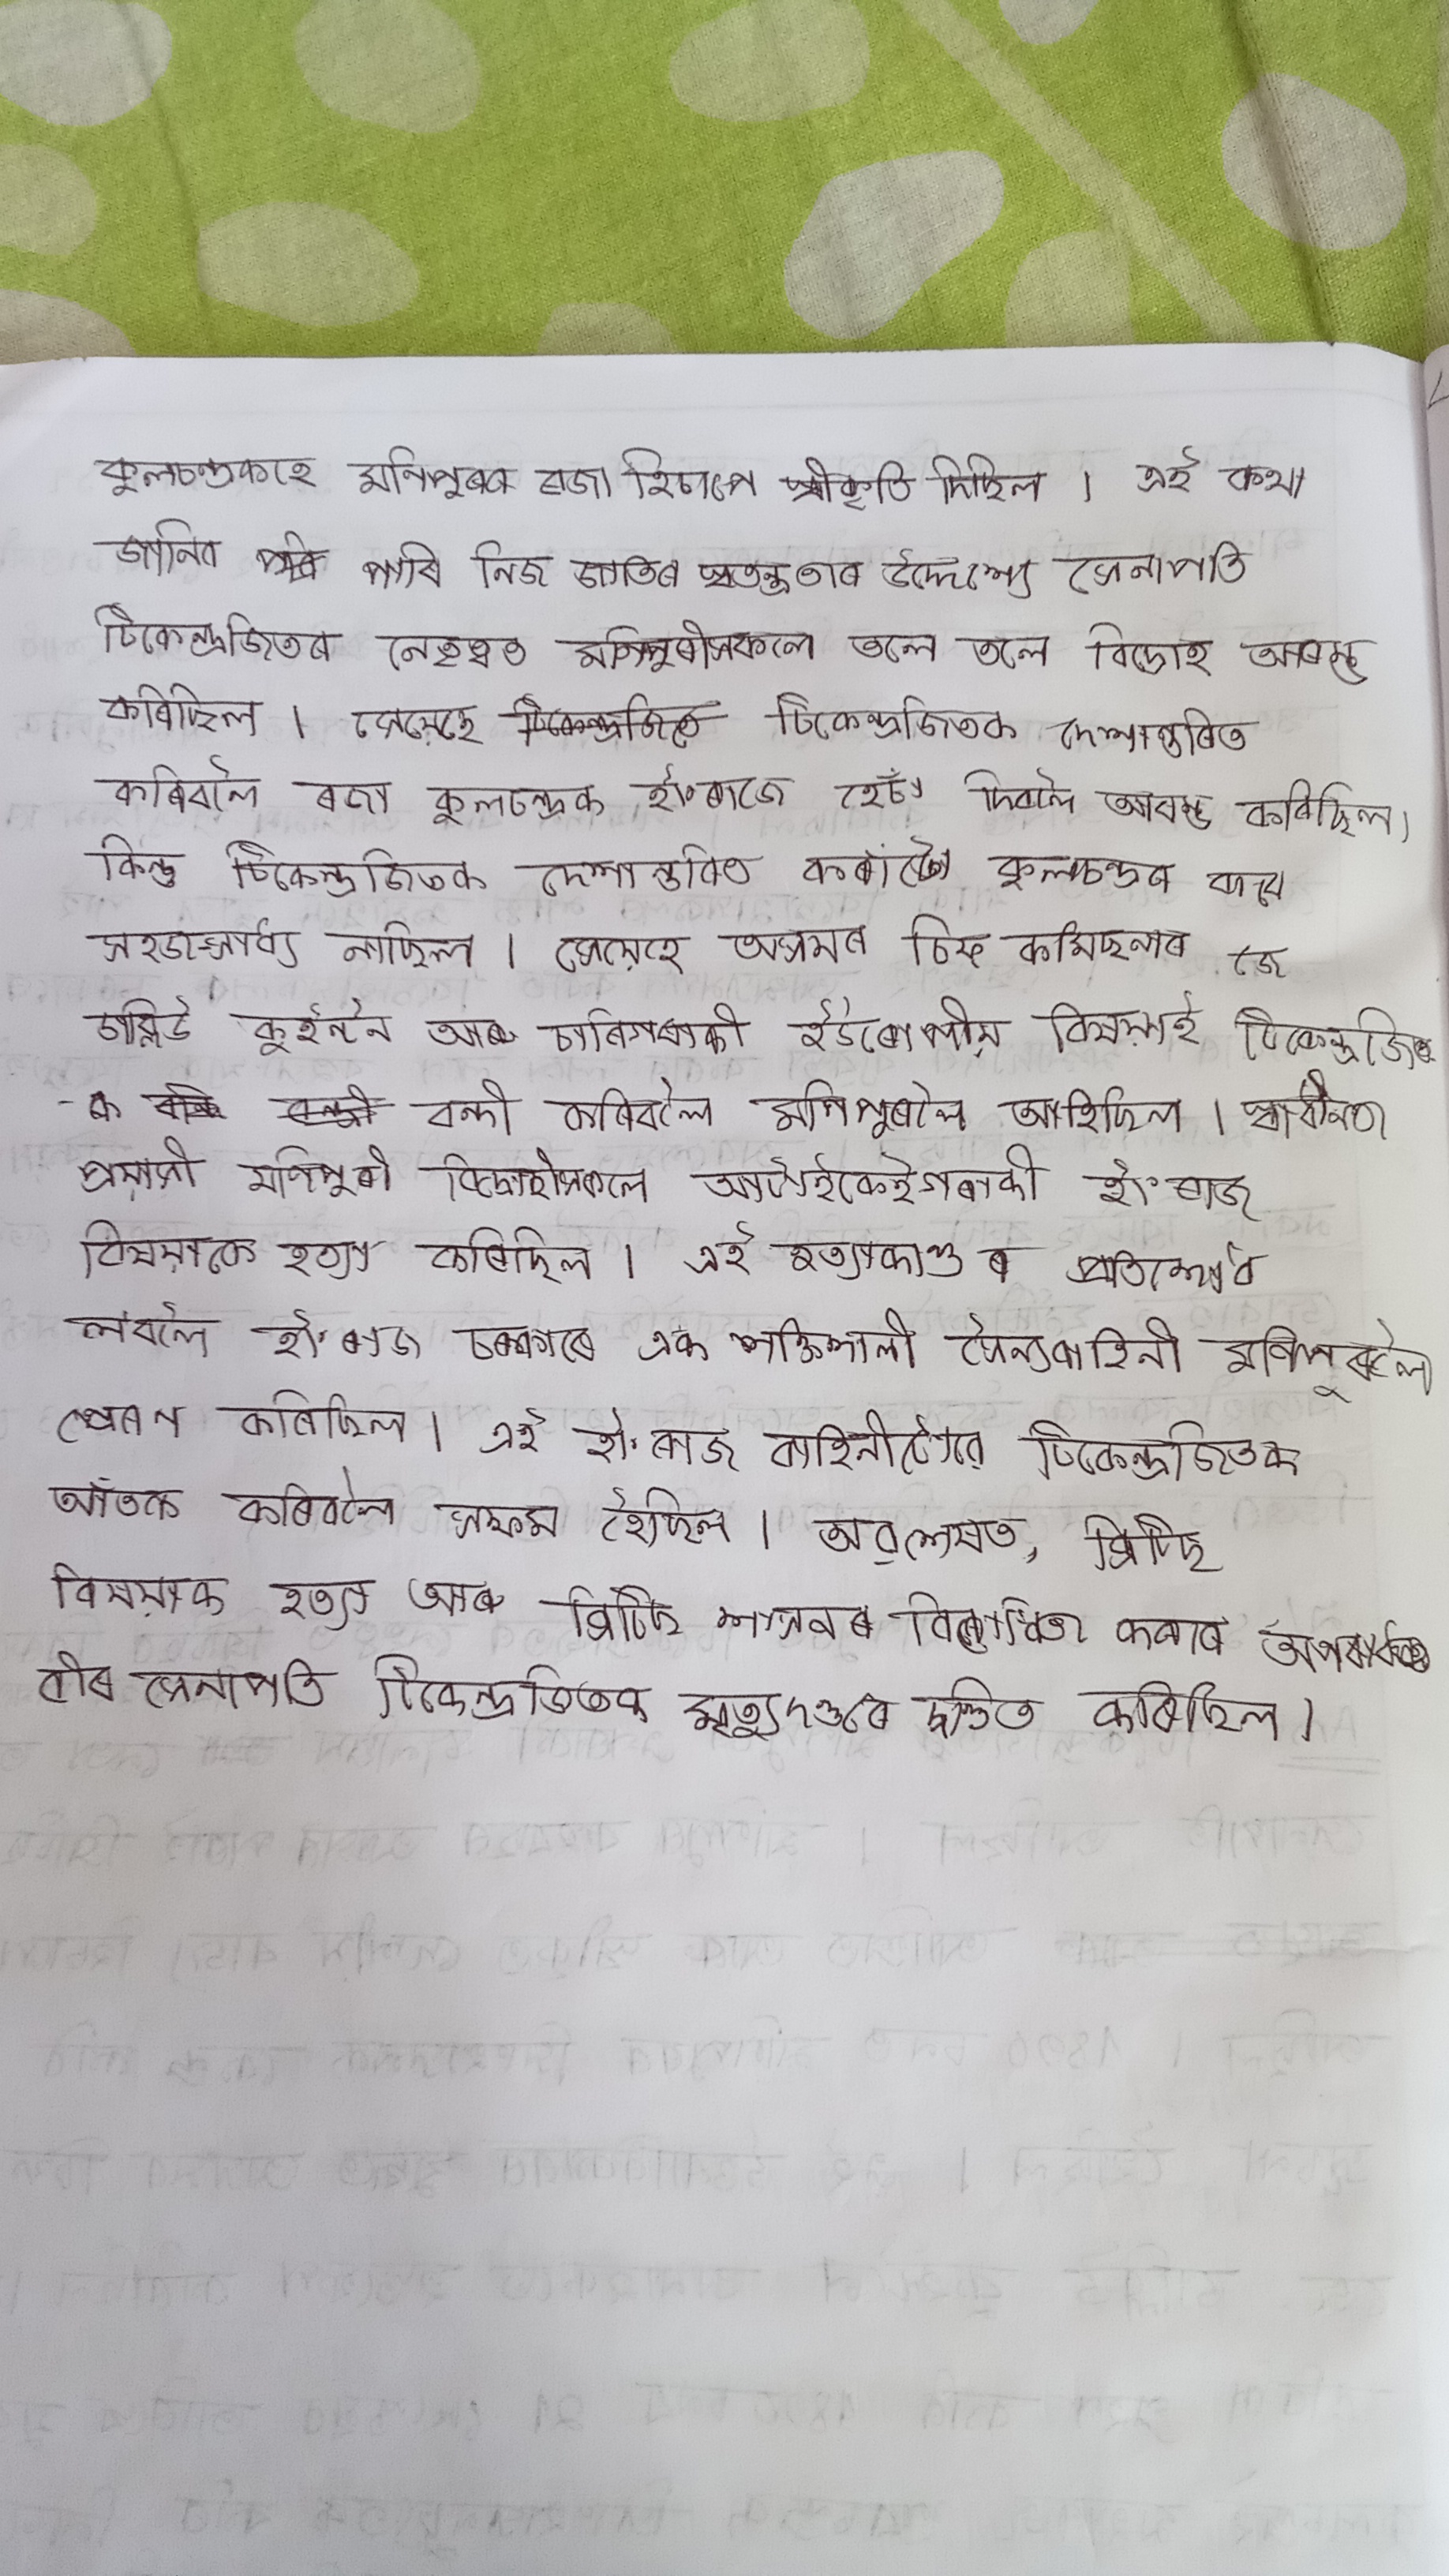 কুলচন্দ্ৰকহে মনিপুৰৰ ৰজা হিচাপে স্বীকৃতি দিছিল । এই কথা
জানিব পাৰি নিজ জাতিৰ স্বতন্ত্ৰতাৰ উদ্দেশ্যে সেনাপতি
টিকেন্দ্ৰজিতৰ নেতৃত্বত মণিপুৰীসকলে তলে তলে বিদ্ৰোহ আৰম্ভ
কৰিছিল । সেয়েহে টিকেন্দ্ৰজিতক দেশান্তৰিত
কৰিবলৈ ৰজা কুলচন্দ্ৰক ইংৰাজে হেঁচা দিবলৈ আৰম্ভ কৰিছিল।
কিন্তু টিকেন্দ্ৰজিতক দেশান্তৰিত কৰাটো কুলচন্দ্ৰৰ বাবে
সহজসাধ্য নাছিল । সেয়েহে অসমৰ চিফ কমিছনাৰ জে
ডাব্লিউ কুইনটন আৰু চাৰিগৰাকী ইউৰোপীয় বিষয়াই টিকেন্দ্ৰজিত
-ক বন্দী কৰিবলৈ মণিপুৰলৈ আহিছিল । স্বাধীনতা
প্ৰয়াসী মণিপুৰী বিদ্ৰোহীসকলে আটাইকেইগৰাকী ইংৰাজ
বিষয়াকে হত্যা কৰিছিল । এই হত্যাকাণ্ডৰ প্ৰতিশোধ
লবলৈ ইংৰাজ চৰকাৰে এক শক্তিশালী সৈন্যবাহিনী মণিপুৰলৈ
প্ৰেৰণ কৰিছিল । এই ইংৰাজ বাহিনীটোৱে টিকেন্দ্ৰজিতক
আঁতক কৰিবলৈ সক্ষম হৈছিল । অৱশেষত, ব্ৰিটিছ
বিষয়াক হত্যা আৰু ব্ৰিটিছ শাসনৰ বিৰোধিতা কৰাৰ অপৰাধত
বীৰ সেনাপতি টিকেন্দ্ৰজিতক মৃত্যুদণ্ডৰে দণ্ডিত কৰিছিল ।